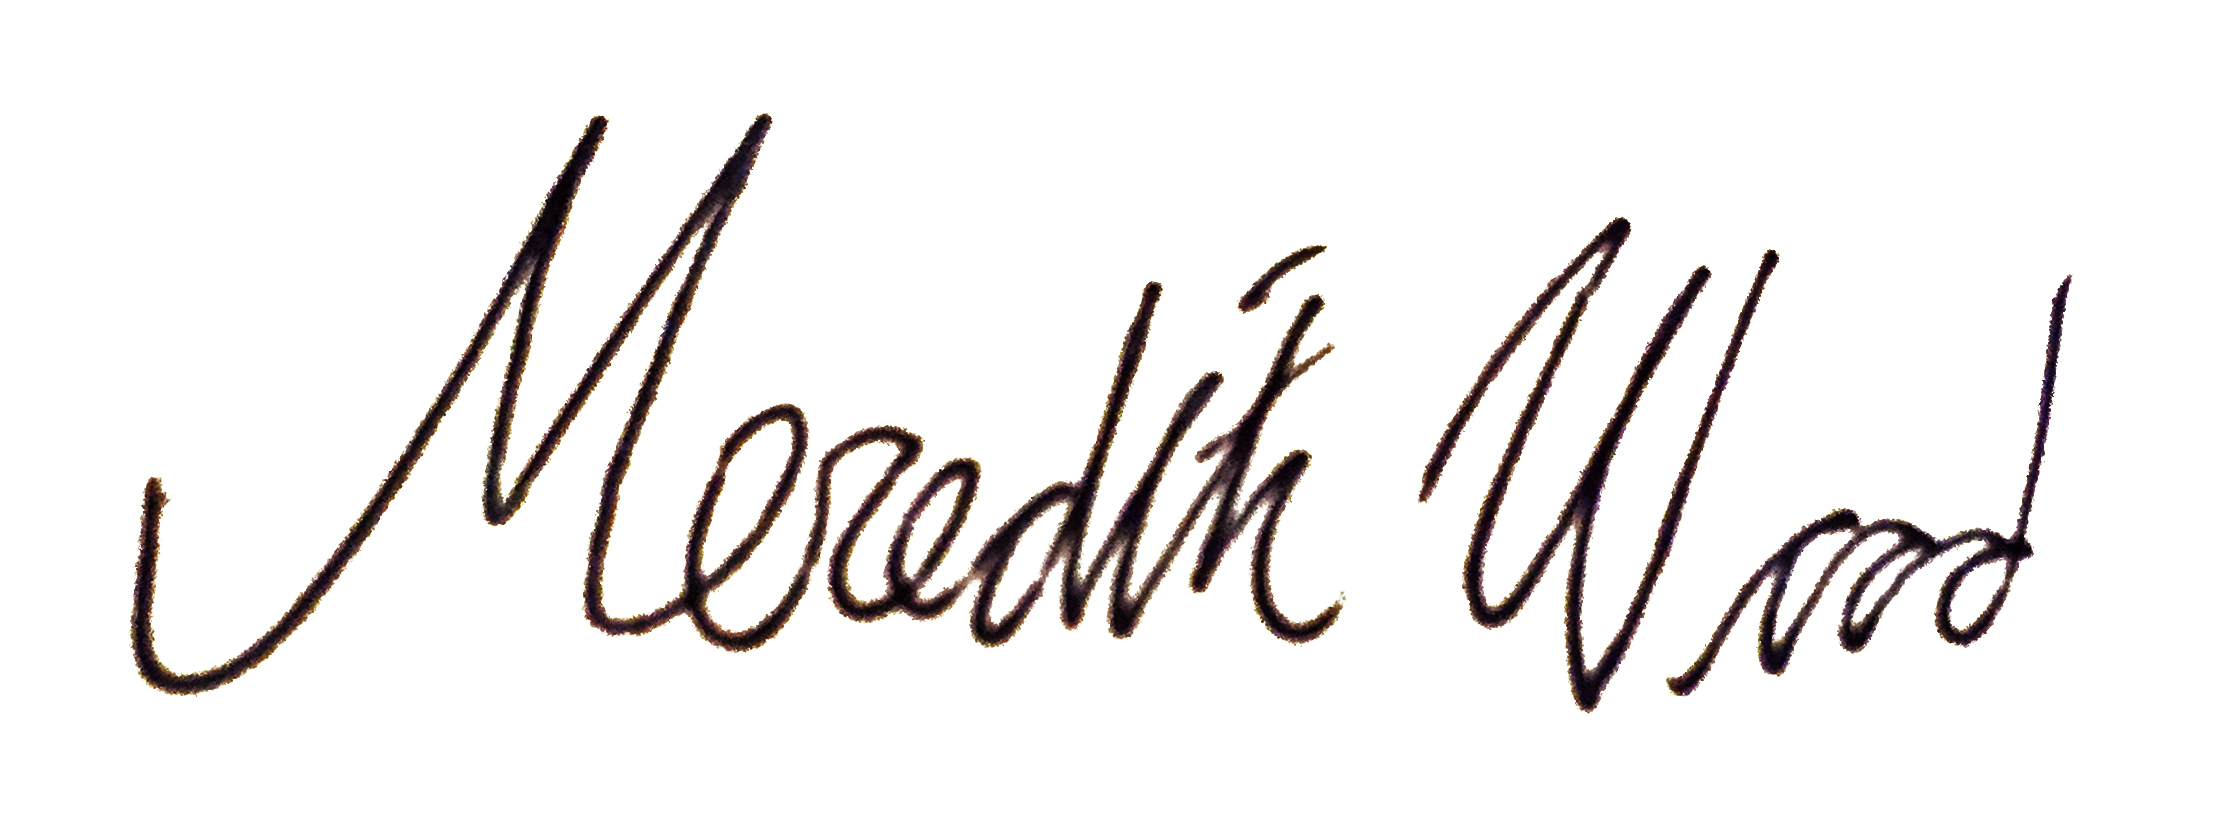 Meredith Wood